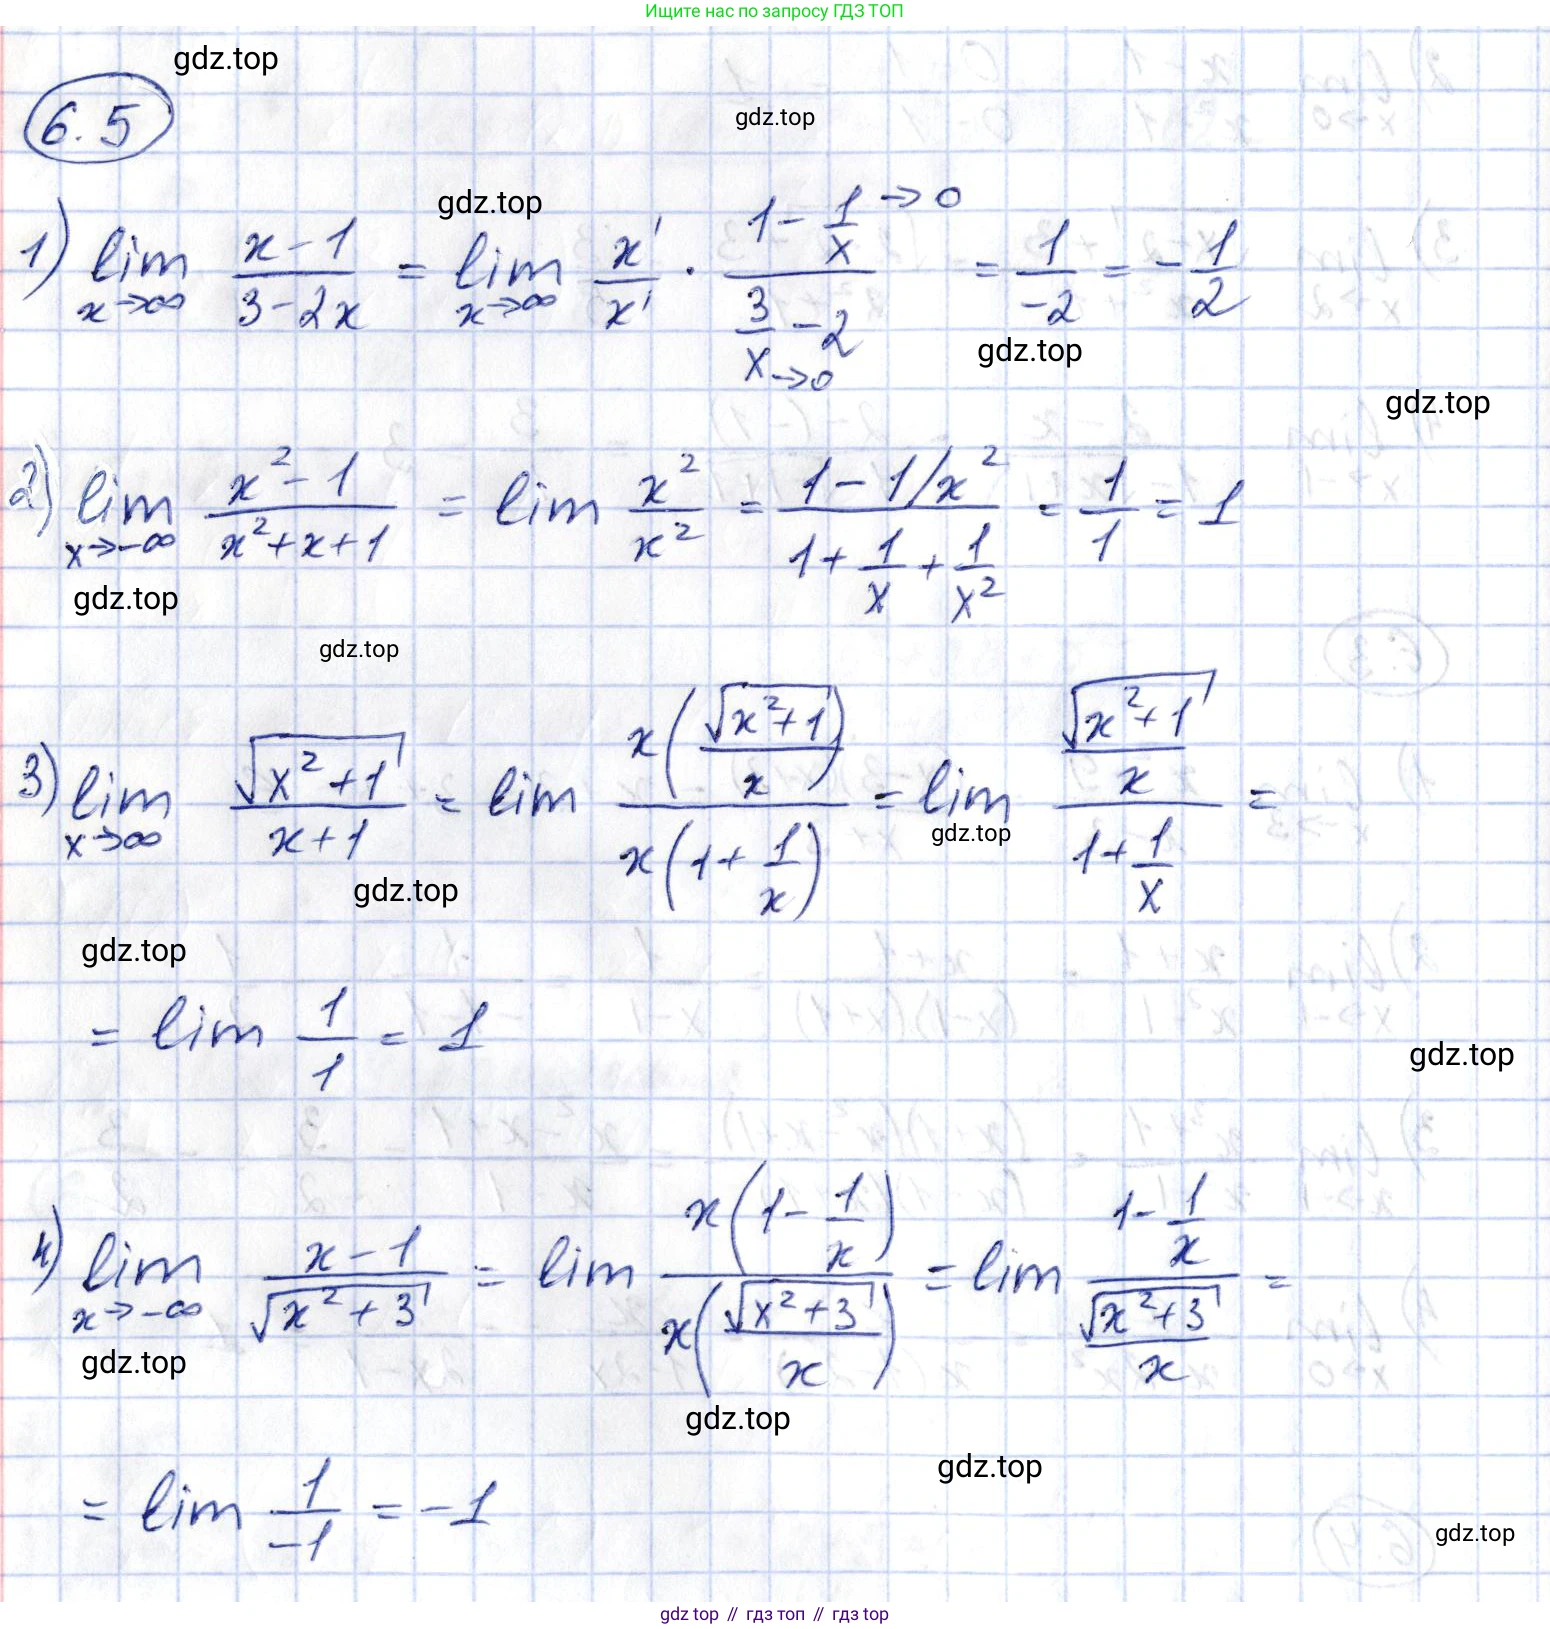 Ищите нас по запросу ГДЗ ТОП
gdz.top
6.5
gdz.top
gdz.top
1) lim x→∞ (x-1)/(3-2x) = lim x→∞ x¹/x¹ · (1 - 1/x →0)/(3/x →0 - 2) = 1/-2 = -1/2
gdz.top
gdz.top
2) lim x→-∞ (x²-1)/(x²+x+1) = lim x²/x² = (1-1/x²)/(1+1/x+1/x²) = 1/1 = 1
gdz.top
gdz.top
3) lim x→∞ √(x²+1)/(x+1) = lim x(√(x²+1)/x)/x(1+1/x) = lim (√(x²+1)/x)/(1+1/x) =
gdz.top
gdz.top
gdz.top
= lim 1/1 = 1
gdz.top
4) lim x→-∞ (x-1)/√(x²+3) = lim x(1-1/x)/x(√(x²+3)/x) = lim (1-1/x)/(√(x²+3)/x) =
gdz.top
gdz.top
gdz.top
= lim 1/-1 = -1
gdz.top
gdz top // гдз топ // гдз top